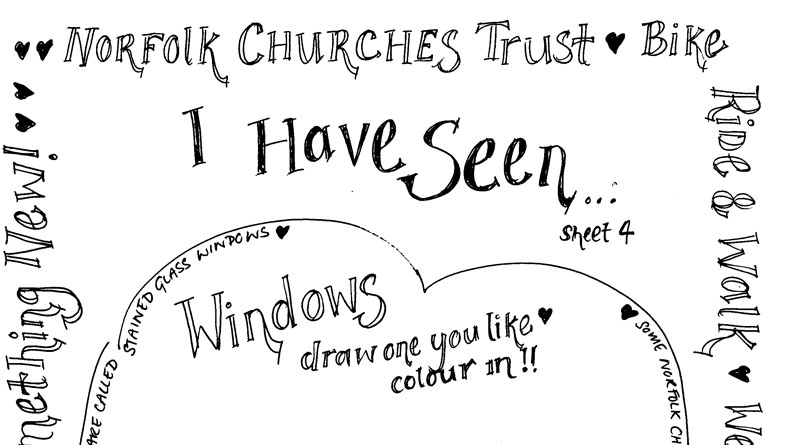 Norfolk Churches Trust ♥ Bike
Ride & Walk ♥
Something New!
I Have Seen...
sheet 4
ARE CALLED STAINED GLASS WINDOWS ♥
Windows
draw one you like ♥
colour in!!
♥ SOME NORFOLK